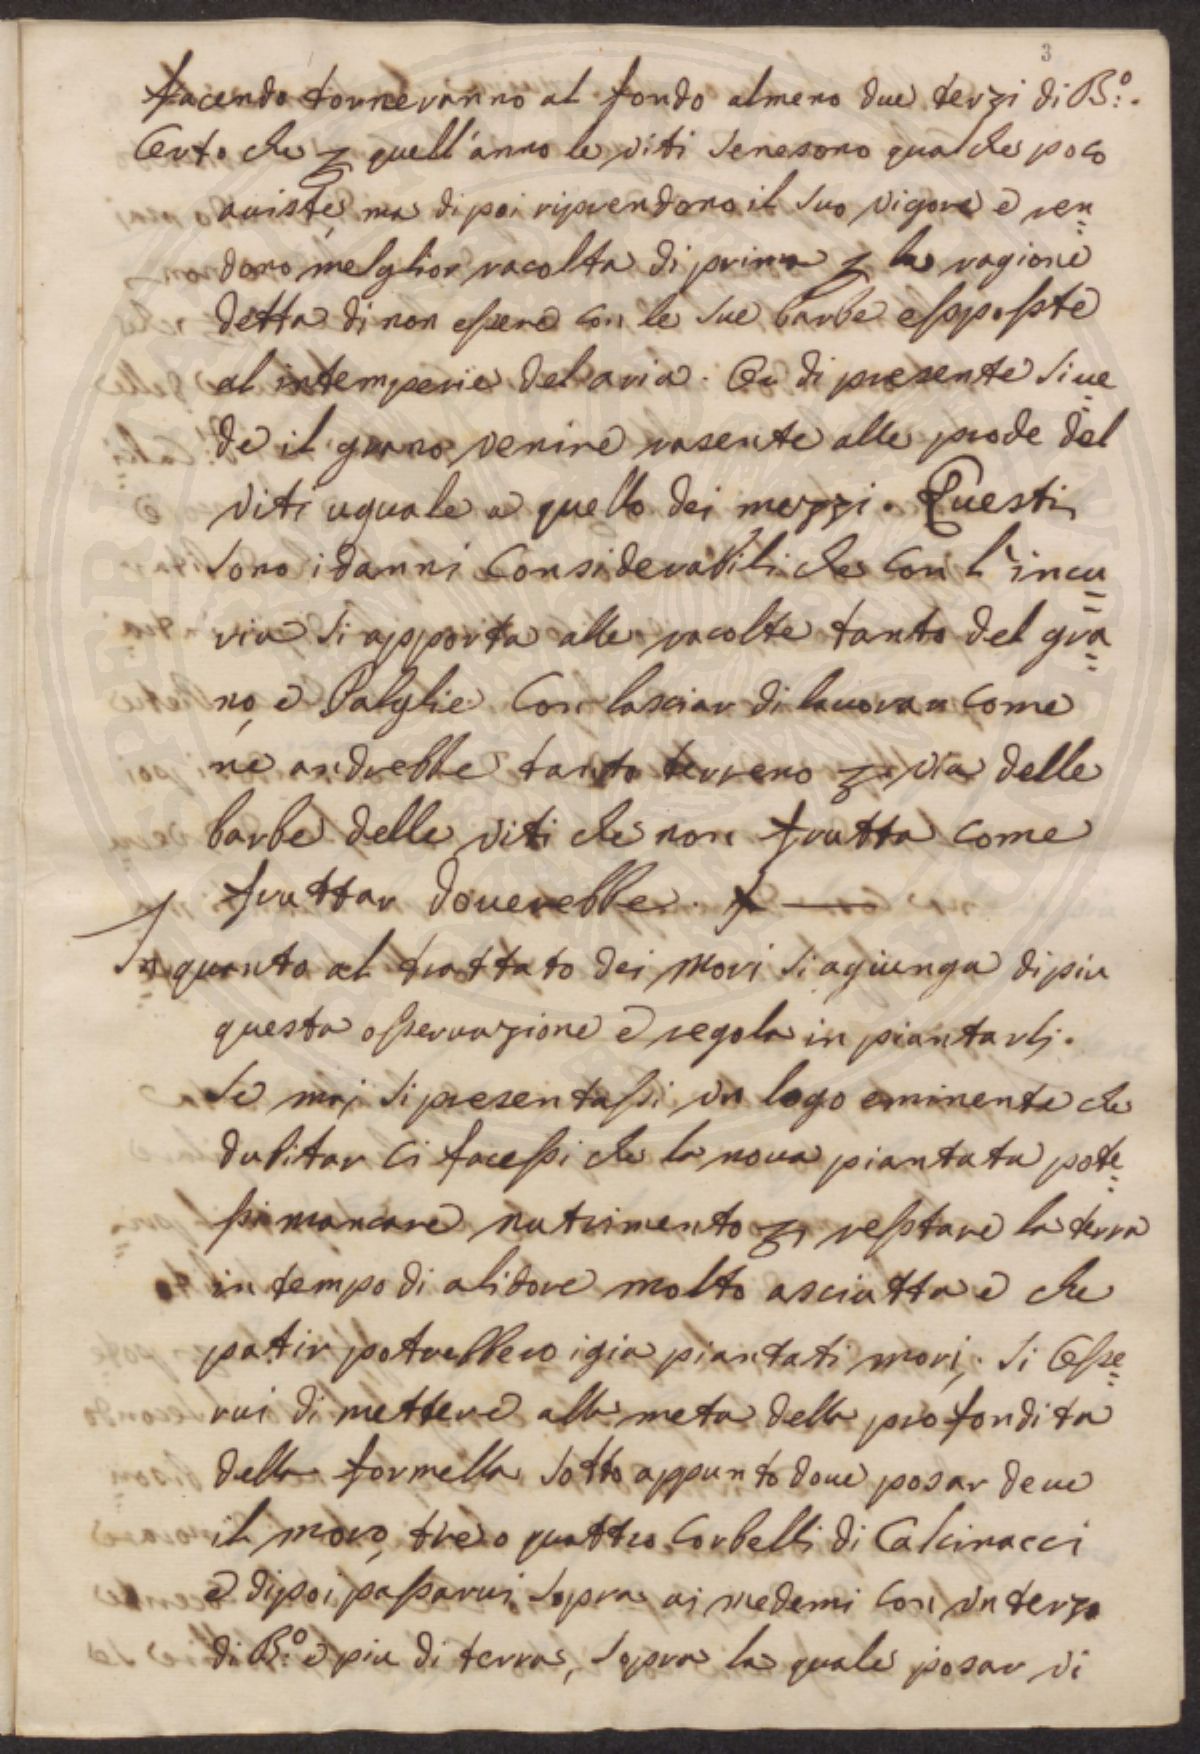 3
facendo torneranno al fondo almeno due terzi di B:º.
Certo che p quell'anno le viti se ne sono qualche poco
auiste, ma di poi riprendono il suo vigore e ren=
dono melglior racolta di prima p la ragione
detta di non essere con le sue barbe espposste
al intemperie del aria. Et di presente si ue=
de il grano venire rasente alle prode del
viti uguale a quello dei mezzi. Questi
sono i danni considerabili che con l'incu=
ria si apporta alle racolte tanto del gra=
no, e Palglie con lasciar di lauorar come
ne andrebbe tanto terreno p via delle
barbe delle viti che non frutta come
fruttar douerebbe.
In quanto al trattato dei Mori si agiunga di piu
questa osseruazione e regola in piantarli.
Se mai si presentassi un logo eminente che
dubitar ci facessi che la noua piantata pote=
ssi mancare nutrimento p resstare la terra
in tempo di alidore molto asciutta e che
patir potrebbero i gia piantati mori, si osse=
rui di mettere alla meta della profondita
della formella sotto appunto doue posar deue
il moro, tre o quattro corbelli di Calcinacci
e dipoi passarui sopra ai medemi con un terzo
di B:º e piu di terra, sopra la quale posar vi